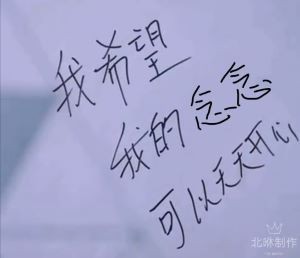 我希望
我的念念
可以天天开心
北咻制作